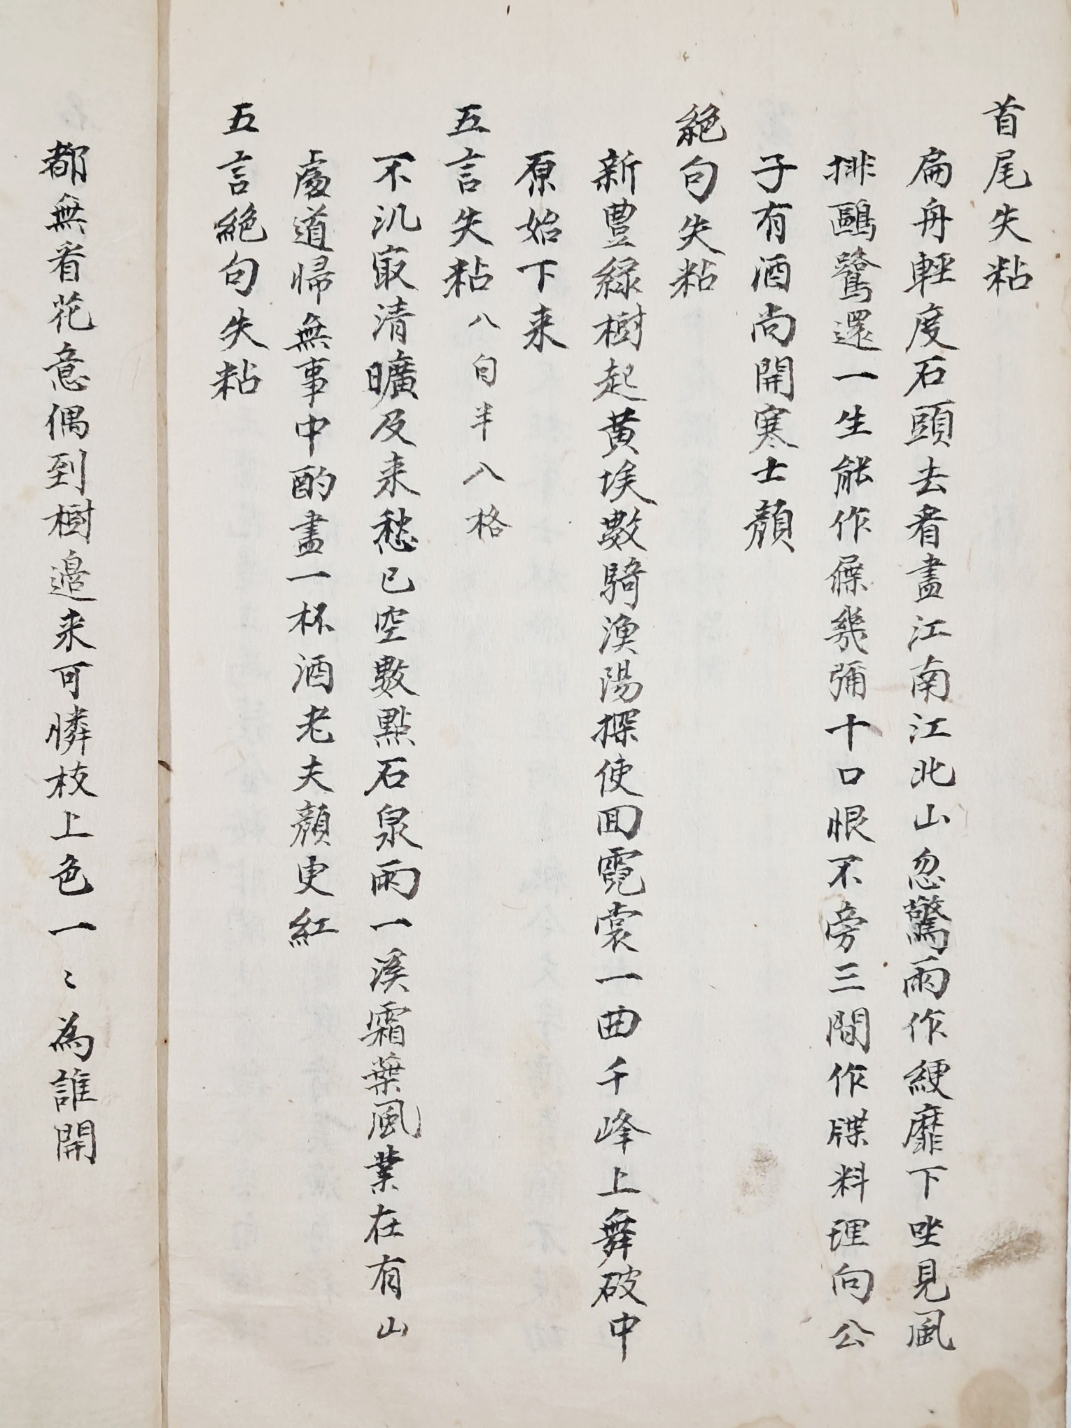 首尾失粘
扁舟輕度石頭去看盡江南江北山忽驚雨作綆靡下坐見風
排鷗鷺還一生能作屧幾彌十口恨不旁三間作牒料理向公
子有酒尚開寒士顏
絕句失粘
新豊緑樹起黄埃數騎漁陽探使回霓裳一曲千峰上舞破中
原始下来
五言失粘 八句半八格
不汎㝡清曠及来愁已空數點石泉雨一溪霜葉風業在有山
處道帰無事中酌盡一杯酒老夫顏更紅
五言絕句失粘
都無看花意偶到樹邉来可憐枝上色一〻為誰開